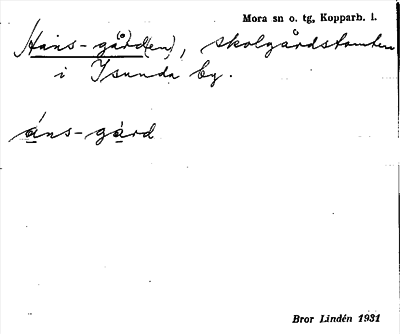 Mora sn o. tg, Kopparb. l.
Hans-gård(en), skolgårdstomten
i Isunda by.
áns-gàrd
Bror Lindén 1931